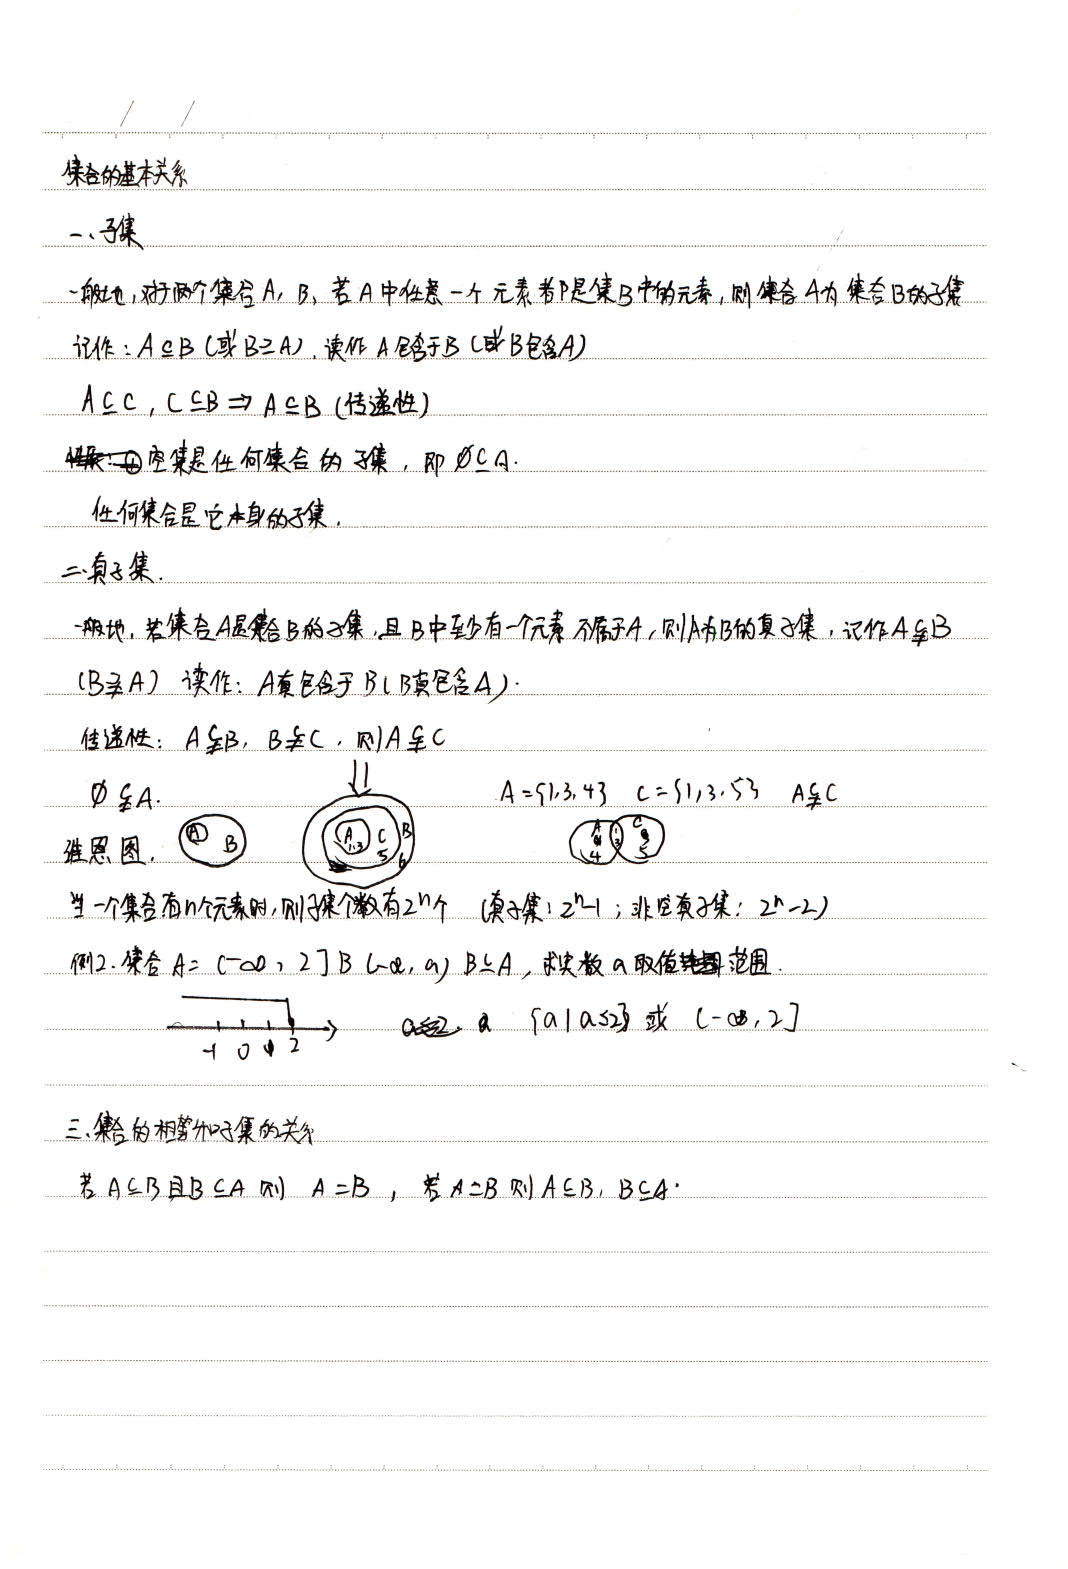 集合的基本关系
一、子集
一般地，对于两个集合A，B，若A中任意一个元素都是集B中的元素，则集合A为集合B的子集
记作：A⊆B（或B⊇A）．读作A包含于B（或B包含A）
A⊆C，C⊆B⇒A⊆B（传递性）
①空集是任何集合的子集，即∅⊆A.
任何集合是它本身的子集．
二、真子集．
一般地，若集合A是集合B的子集，且B中至少有一个元素不属于A，则A为B的真子集，记作A⫋B
（B⫌A） 读作：A真包含于B（B真包含A）．
传递性：A⫋B，B⫋C，则A⫋C
∅⫋A. A={1,3,4} C={1,3,5} A⫋C
维恩图． A B A 1,3 C 5 B 6 A 4 1 3 C 5
当一个集合有n个元素时，则子集个数有2ⁿ个 （真子集：2ⁿ-1；非空真子集：2ⁿ-2）
例2．集合A=(-∞，2] B(-∞，a) B⊆A，求实数a取值范围．
-1 0 2 {a|a≤2} 或 (-∞，2]
三、集合的相等和子集的关系
若A⊆B且B⊆A则 A=B，若A=B则A⊆B，B⊆A.